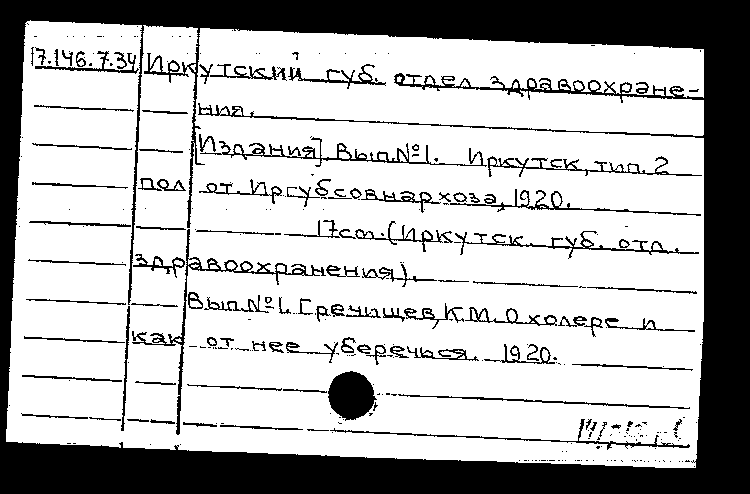 17.146.7.34 Иркутский губ. отдел здравоохране-
ния.
[Издания]. Вып.№1. Иркутск, тип. 2
пол от. Иргубсовнархоза, 1920.
17ст. (Иркутск. губ. отд.
здравоохранения).
Вып.№1. Гречищев, К.М. О холере и
как от нее уберечься. 1920.